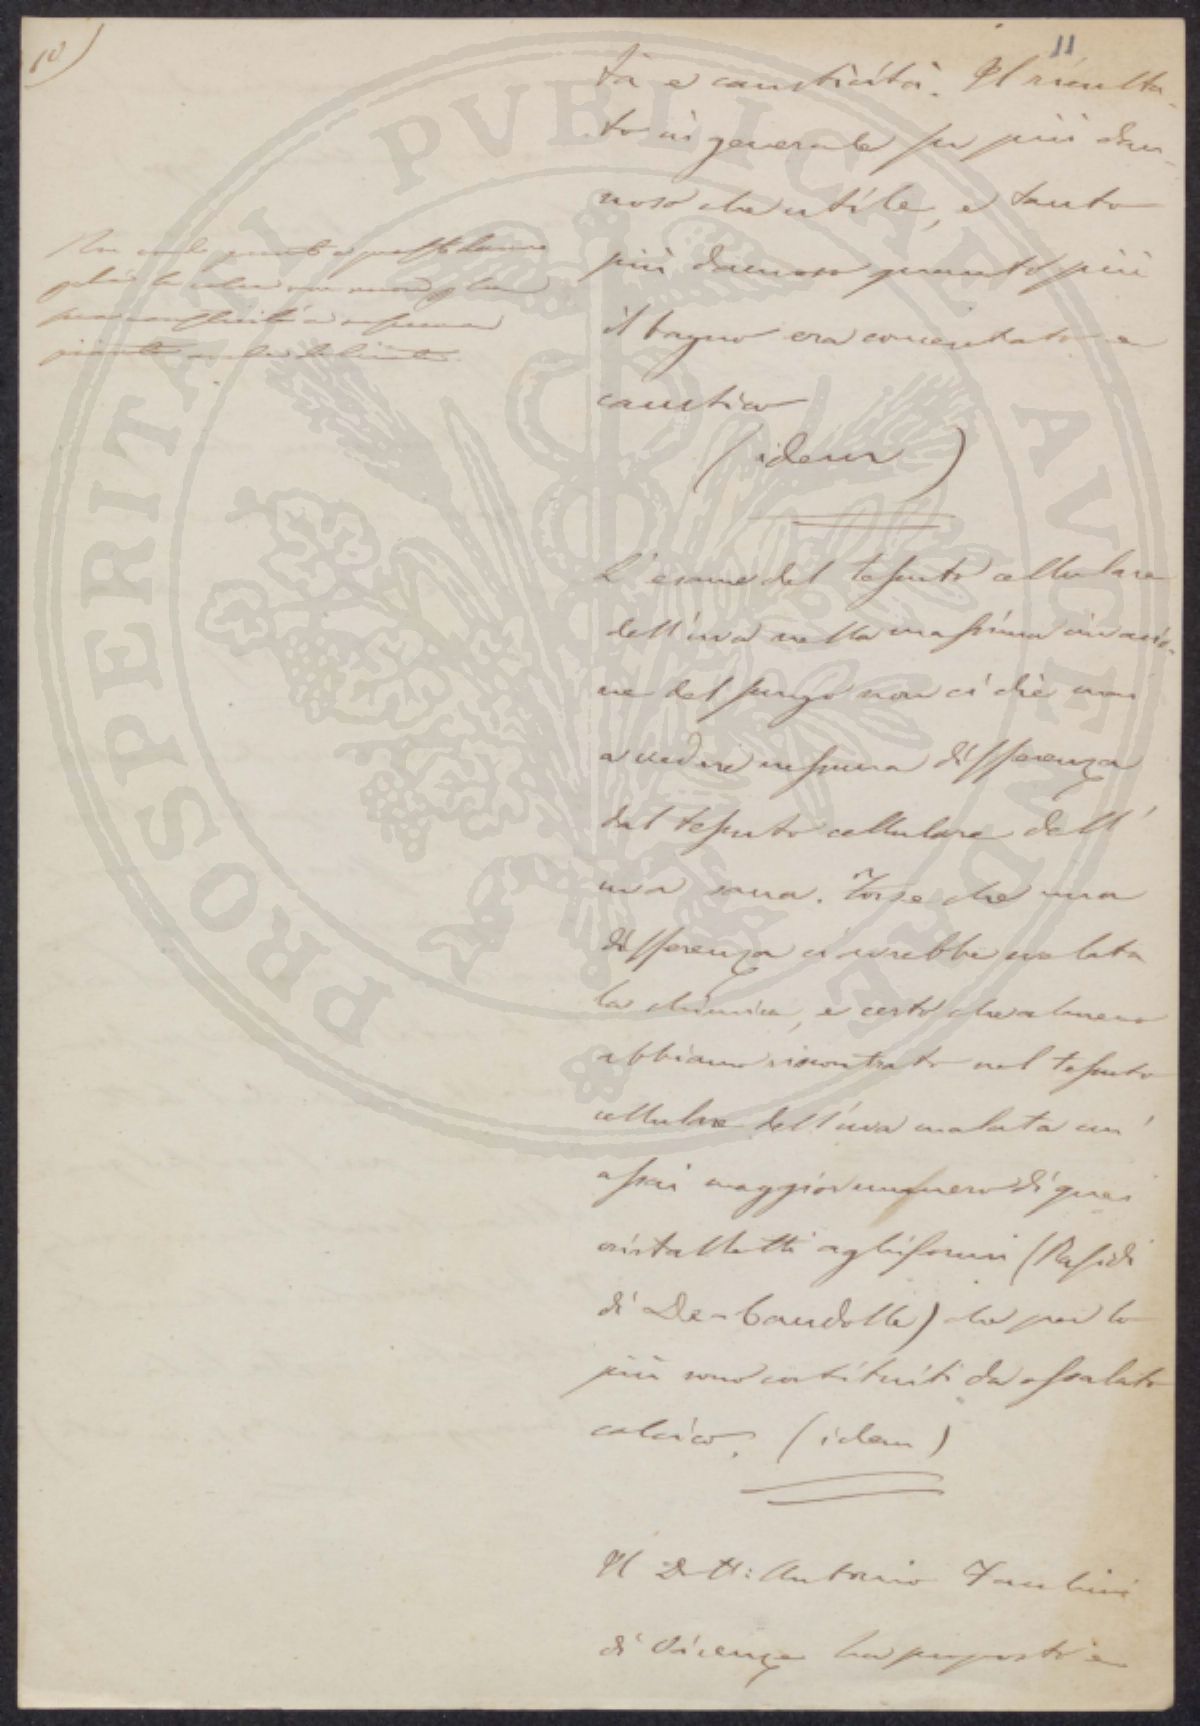 10)
11
tà e causticità. Il risulta-
to in generale fu più dan-
noso che utile, e tanto
più dannoso quanto più
il bagno era concentrato e
caustico
(idem)
L'esame del tessuto cellulare
dell'uva nella massima invasio-
ne del fungo non ci diè mai
a vedere nessuna differenza
dal tessuto cellulare dell'
uva sana. Forse che una
differenza ci avrebbe svelata
la chimica, e certo che almeno
abbiamo riscontrato nel tessuto
cellulare dell'uva malata un'
assai maggior numero di quei
cristalletti aghiformi (Rafidi
di De-Candolle) che per lo
più sono costituiti da ossalato
calcico. (idem)
Il Dott: Antonio
di Vicenza ha proposto e
PROSPERITATI PVBLICAE AVGENDAE